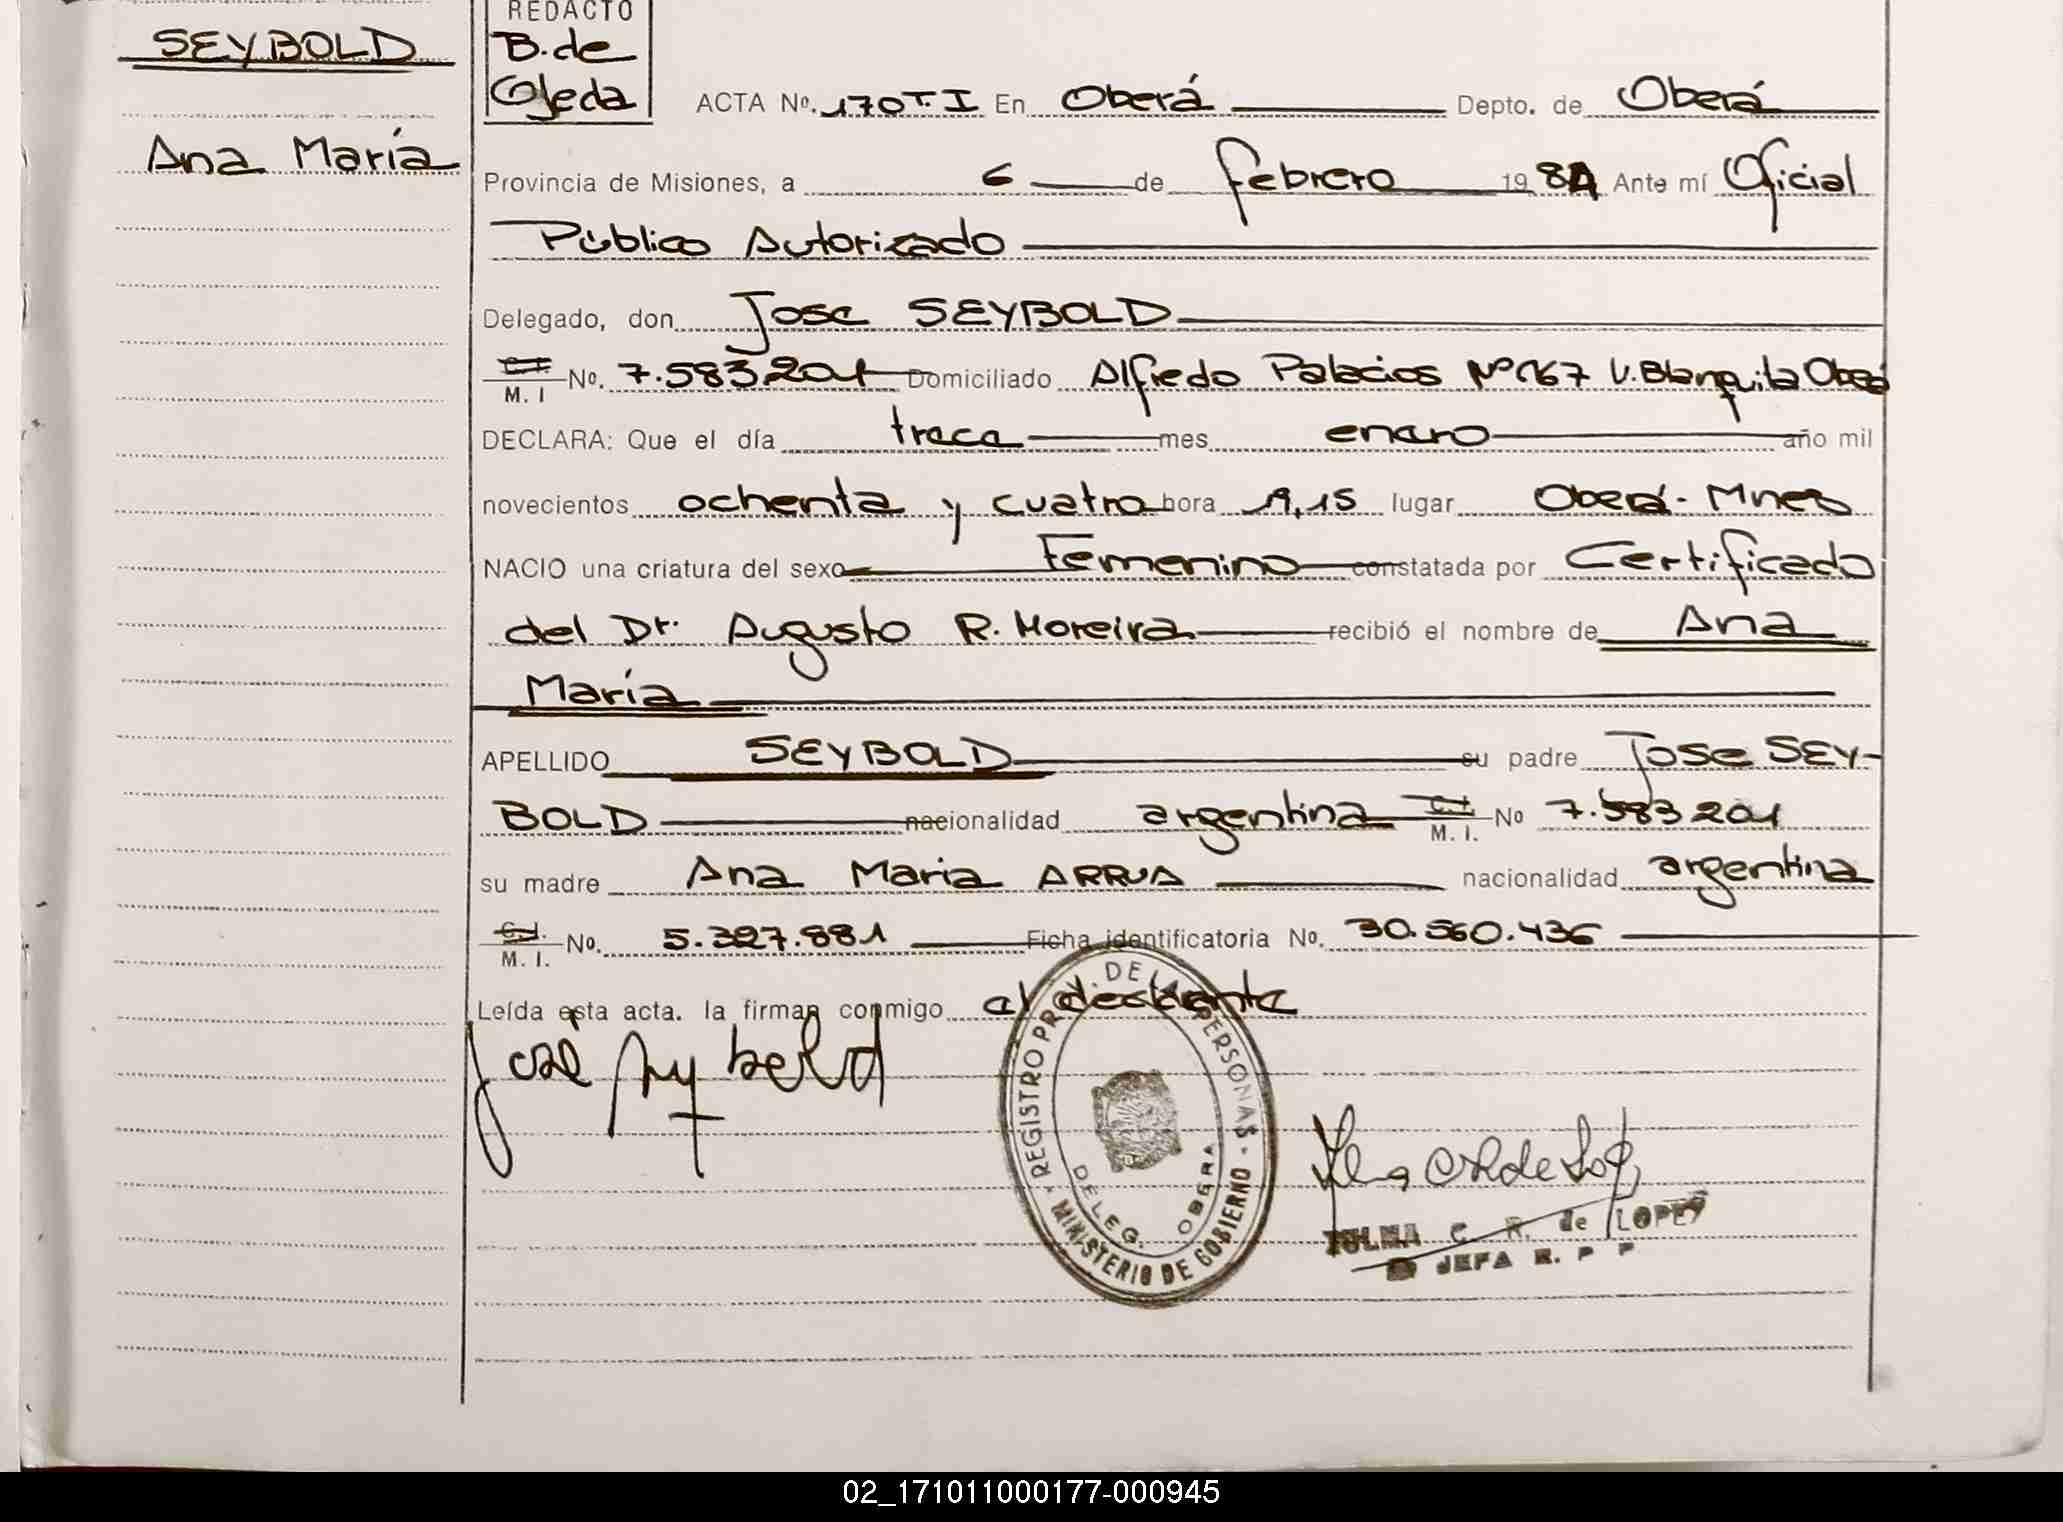 SEYBOLD
Ana María
REDACTO
B. de
Ojeda
ACTA Nº. 170 T. I En Oberá Depto. de Oberá
Provincia de Misiones, a 6 de febrero 1984 Ante mí Oficial
Público Autorizado
Delegado, don Jose SEYBOLD
C. I.
M. I Nº. 7.583.201 Domiciliado Alfredo Palacios Nº 167 V. Blanquita Oberá
DECLARA: Que el día trece mes enero año mil
novecientos ochenta y cuatro hora lugar Oberá - Mnes
NACIO una criatura del sexo Femenino constatada por Certificado
del Dr. Augusto R. Moreira recibió el nombre de Ana
María
APELLIDO SEYBOLD su padre Jose SEY-
BOLD nacionalidad argentina C. I.
M. I. No 7.583.201
su madre Ana Maria ARRUA nacionalidad argentina
C. I.
M. I. No. 5.327.881 Ficha identificatoria No. 30.560.436
Leída esta acta. la firman conmigo el declarante
José Seybold
REGISTRO PROV. DE LAS PERSONAS - MINISTERIO DE GOBIERNO
DELEG. OBERA
C. R. de LOPEZ
JEFA R. P P
02_171011000177-000945